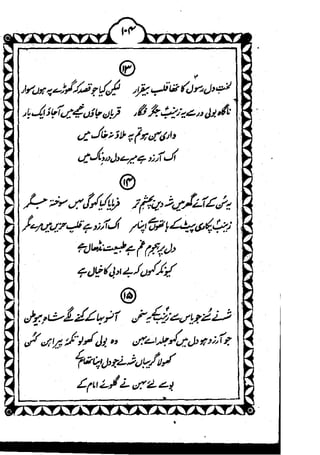 ۱۰۴
۱۳
لختِ دل رسول کا تھا قلب بیقرار لیکن کیا جو قصد کہ گھوڑے پہ ہوں سوار
ناگاہ بولی در سے یہ زینبؑ جگر فگار قربان جاؤں خیمے میں آجاؤ ایک بار
واری میں ہوتم پہ ملاؤ نہ خاک میں
اک آرزو ہے میرے دل دردناک میں
۱۴
یہ سُن کے آئے گھر میں شہ دیں بچشم تر فرمایا کیا کہو گی بہن سوختہ جگر
زینبؑ پکاری پیٹ کے ہاتھوں اپنا سر اک آرزو ہے قلب حزیں میں مرے مگر
دل پر ہجوم غم ہے طبیعت نڈھال ہے
کیونکر کہوں کہ بے ادبی کا خیال ہے
۱۵
شہ نے سُنے جو یاس سے زینبؑ کے یہ سخن آنسو بہا کے کہنے لگے شاہ بے وطن
جو آرزو ہو دل میں کہو جلد اے بہن وہ بولی کھولو تکمۂ پیراہن کہن
کھولا گریباں شہ نے جو دل اپنا تھام کے
بوسے لئے بہن نے گلوئے امام کے